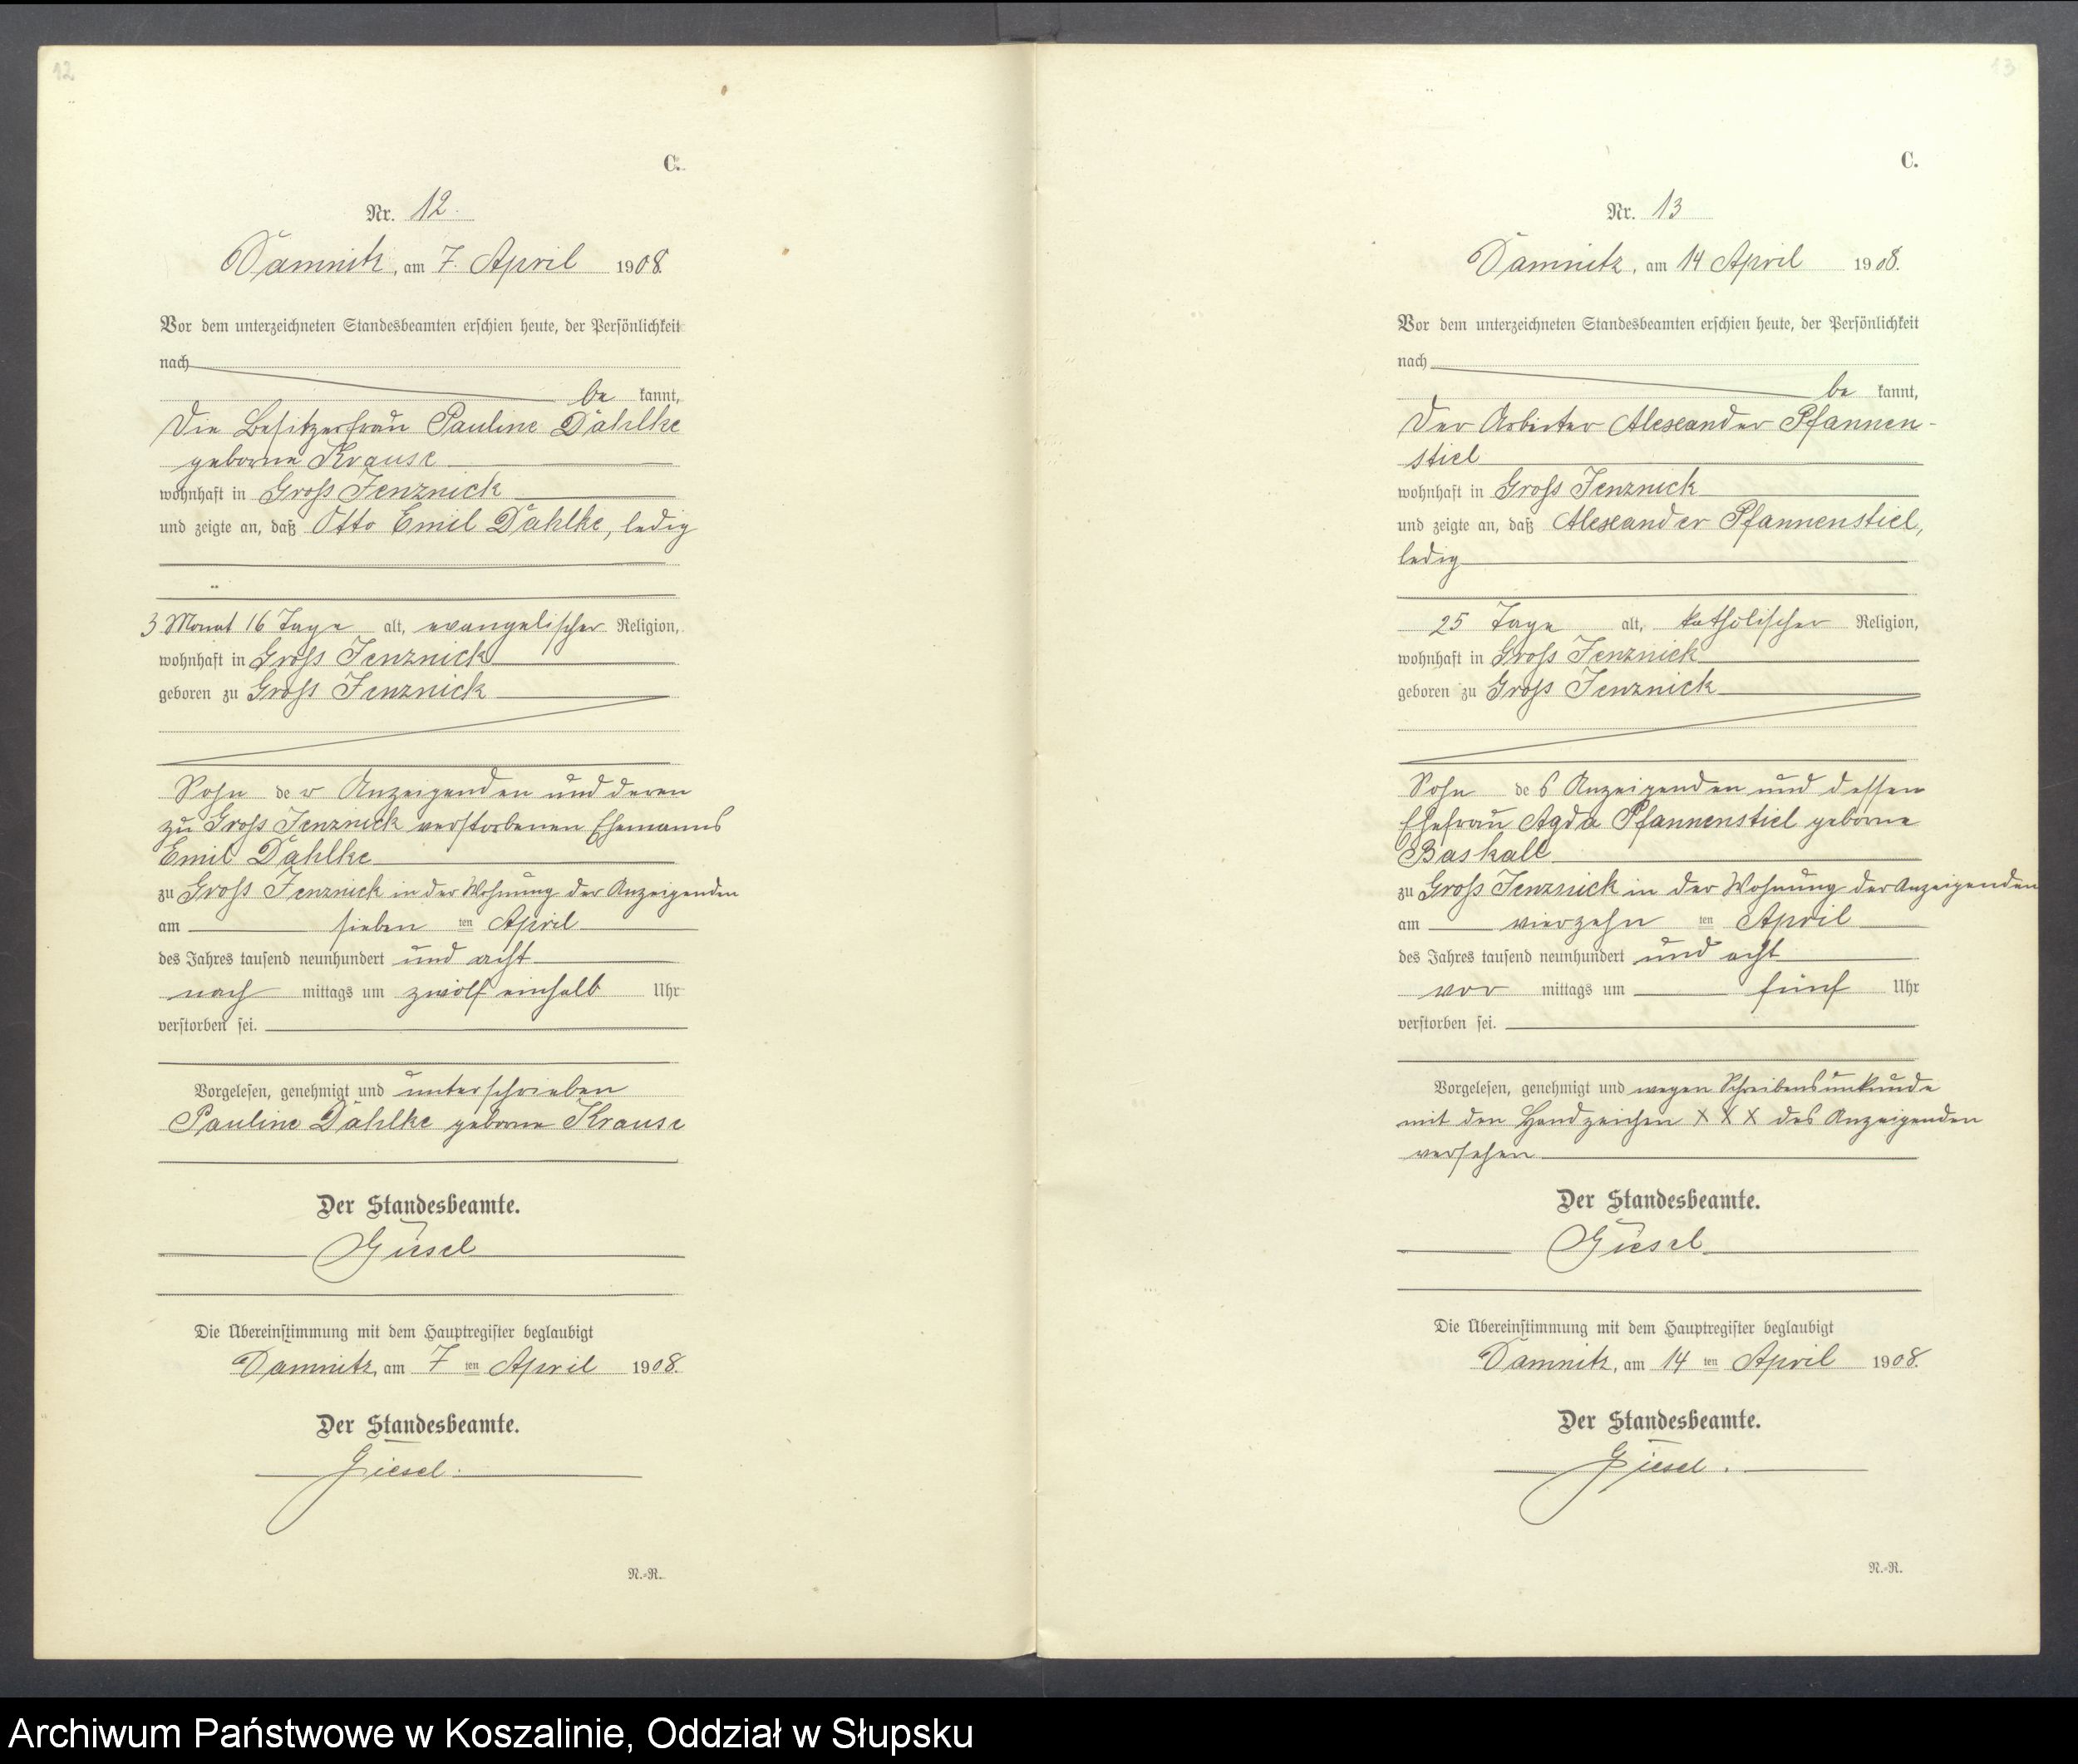 12
C.
Nr. 12.
Damnitz, am 7. April 1908.
Vor dem unterzeichneten Standesbeamten erschien heute, der Persönlichkeit
nach
be kannt,
Die Besitzerfrau Pauline Dahlke
geborne Krause
wohnhaft in Gross Jenznick
und zeigte an, daß Otto Emil Dahlke, ledig
3 Monat 16 Tage alt, evangelischer Religion,
wohnhaft in Gross Jenznick
geboren zu Gross Jenznick
Sohn der Anzeigenden und deren
zu Gross Jenznick verstorbenen Ehemanns
Emil Dahlke
zu Gross Jenznick in der Wohnung der Anzeigenden
am sieben ten April
des Jahres tausend neunhundert und acht
nach mittags um zwölf einhalb Uhr
verstorben sei.
Vorgelesen, genehmigt und unterschrieben
Pauline Dahlke geborne Krause
Der Standesbeamte.
Giesel
Die Übereinstimmung mit dem Hauptregister beglaubigt
Damnitz, am 7 ten April 1908.
Der Standesbeamte.
Giesel.
N.-R.
13
C.
Nr. 13
Damnitz, am 14 April 1908.
Vor dem unterzeichneten Standesbeamten erschien heute, der Persönlichkeit
nach
be kannt,
Der Arbeiter Alexander Pfannen-
stiel
wohnhaft in Gross Jenznick
und zeigte an, daß Alexander Pfannenstiel,
ledig
25 Tage alt, katholischer Religion,
wohnhaft in Gross Jenznick
geboren zu Gross Jenznick
Sohn des Anzeigenden und dessen
Ehefrau Agda Pfannenstiel geborne
Baskall
zu Gross Jenznick in der Wohnung der Anzeigenden
am vierzehn ten April
des Jahres tausend neunhundert und acht
vor mittags um fünf Uhr
verstorben sei.
Vorgelesen, genehmigt und wegen Schreibensunkunde
mit den Handzeichen X X X des Anzeigenden
versehen
Der Standesbeamte.
Giesel
Die Übereinstimmung mit dem Hauptregister beglaubigt
Damnitz, am 14 ten April 1908.
Der Standesbeamte.
Giesel.
N.-R.
Archiwum Państwowe w Koszalinie, Oddział w Słupsku